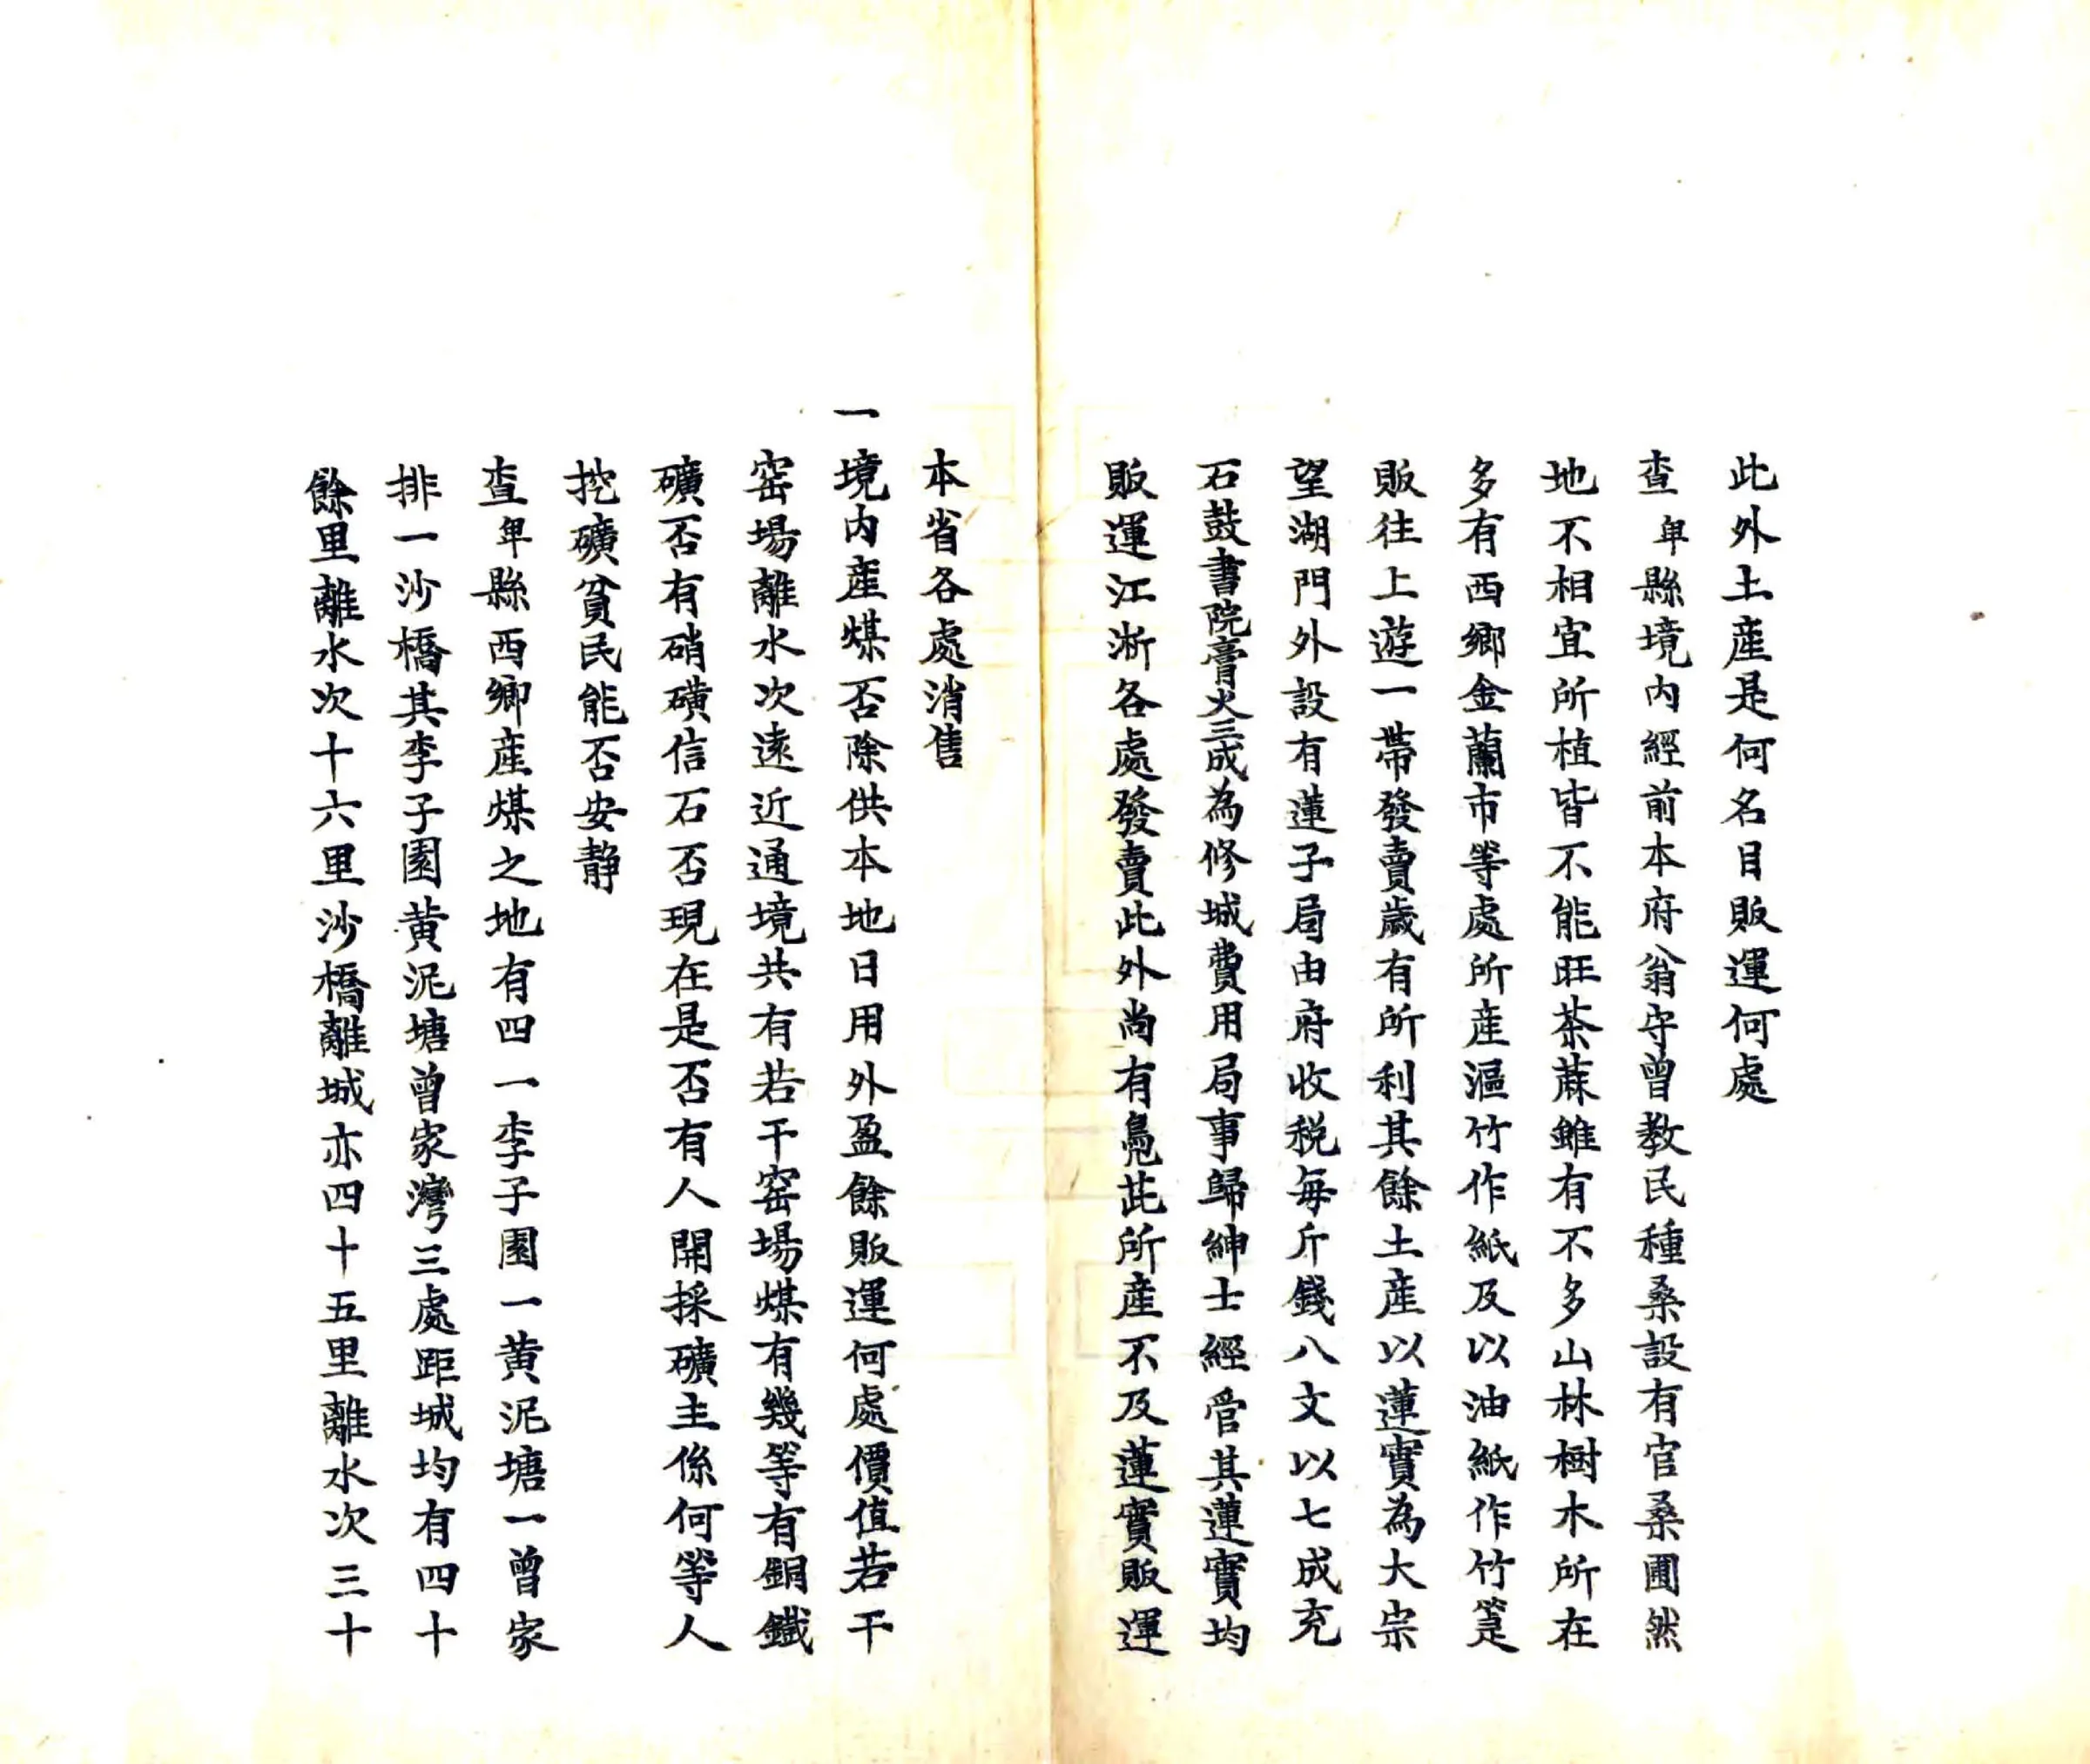 此外土産是何名目販運何處
查卑縣境内經前本府翁守曾教民種桑設有官桑圃然
地不相宜所植皆不能旺茶蔴雖有不多山林樹木所在
多有西鄉金蘭市等處所産漚竹作紙及以油紙作竹箑
販往上遊一帶發賣歲有所利其餘土産以蓮實為大宗
望湖門外設有蓮子局由府收税每斤錢八文以七成充
石鼓書院膏火三成為修城費用局事歸紳士經管其蓮實均
販運江浙各處發賣此外尚有鳧茈所産不及蓮實販運
本省各處消售
一境内産煤否除供本地日用外盈餘販運何處價值若干
窑場離水次遠近通境共有若干窑場煤有幾等有銅鐵
礦否有硝磺信石否現在是否有人開採礦主係何等人
挖礦貧民能否安靜
查卑縣西鄉産煤之地有四一李子園一黄泥塘一曾家
排一沙橋其李子園黄泥塘曾家灣三處距城均有四十
餘里離水次十六里沙橋離城亦四十五里離水次三十